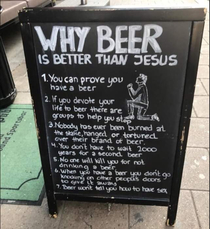 WHY BEER
IS BETTER THAN JESUS
1. You can prove you
have a beer
2. If you devote your
life to beer there are
groups to help you stop
3. Nobody has ever been burned at
the stake, hanged, or tortured
over their brand of beer.
4. You don't have to wait 2000
years for a second beer
5. No one will kill you for not
drinking a beer
6. When you have a beer you don't go
knocking on other people's doors
to give it away
7. Beer won't tell you how to have sex